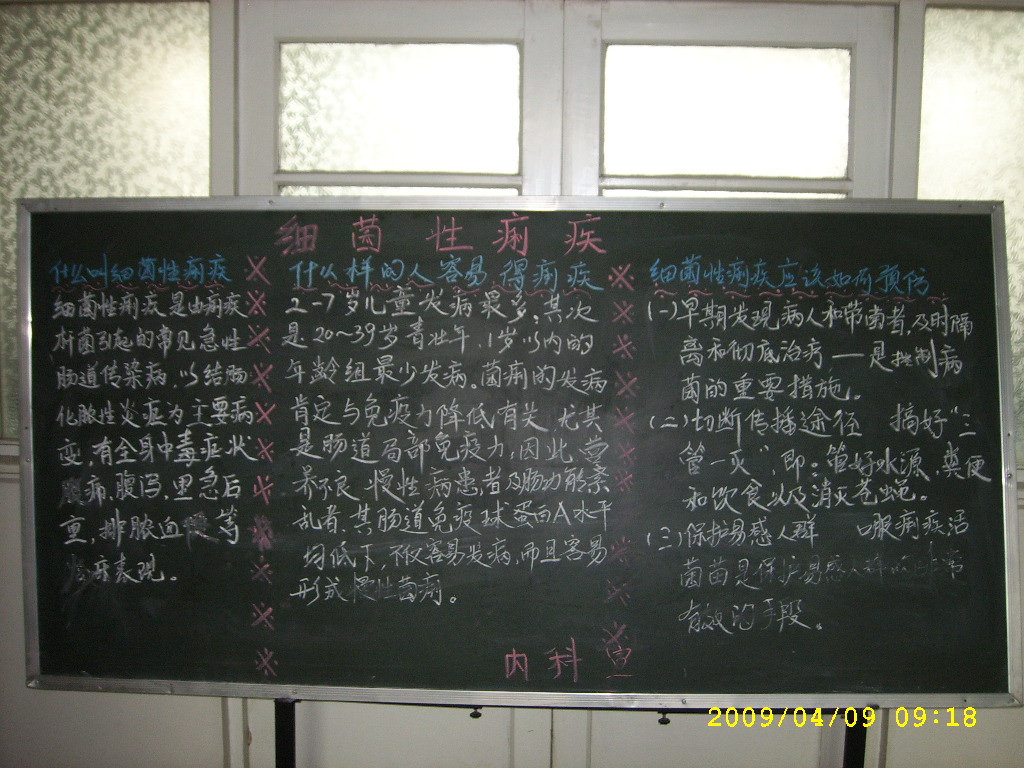 细菌性痢疾
什么叫细菌性痢疾
细菌性痢疾是由痢疾
杆菌引起的常见急性
肠道传染病，以结肠
化脓性炎症为主要病
变，有全身中毒症状
腹痛，腹泻，里急后
重，排脓血便等
临床表现。
什么样的人容易得痢疾
2-7岁儿童发病最多，其次
是20～39岁青壮年，1岁以内的
年龄组最少发病。菌痢的发病
肯定与免疫力降低有关，尤其
是肠道局部免疫力，因此，营
养不良、慢性病患者及肠功能紊
乱者，其肠道免疫球蛋白A水平
均低下，不仅容易发病，而且容易
形成慢性菌痢。
细菌性痢疾应该如何预防
(一)早期发现病人和带菌者，及时隔
离和彻底治疗——是控制病
菌的重要措施。
(二)切断传播途径 搞好“三
管一灭”，即：管好水源、粪便
和饮食以及消灭苍蝇。
(三)保护易感人群 口服痢疾活
菌苗是保护易感人群的非常
有效的手段。
内科宣
2009/04/09 09:18